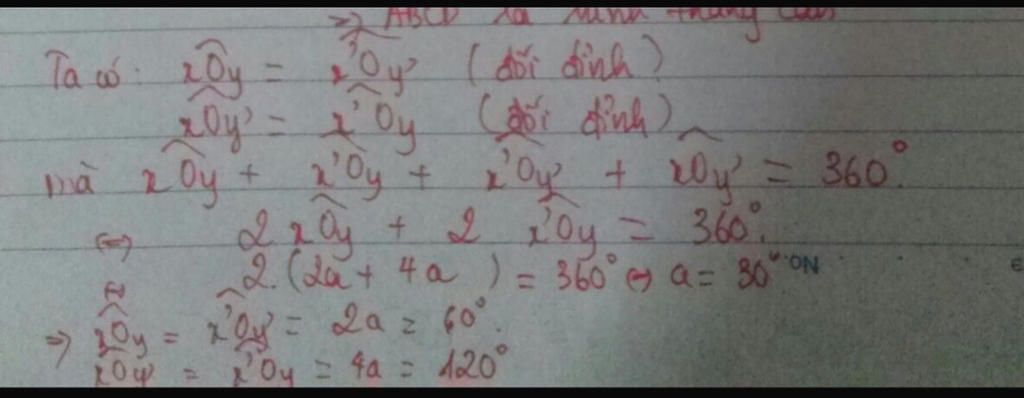 => ABCD là hình thang cân
Ta có: xOy = x'Oy' (đối đỉnh)
xOy' = x'Oy (đối đỉnh)
mà xOy + x'Oy + x'Oy' + xOy' = 360°.
<=> 2 xOy + 2 x'Oy = 360°.
2.(2a + 4a) = 360° <=> a = 30° ON
=> xOy = x'Oy' = 2a = 60°.
xOy' = x'Oy = 4a = 120°